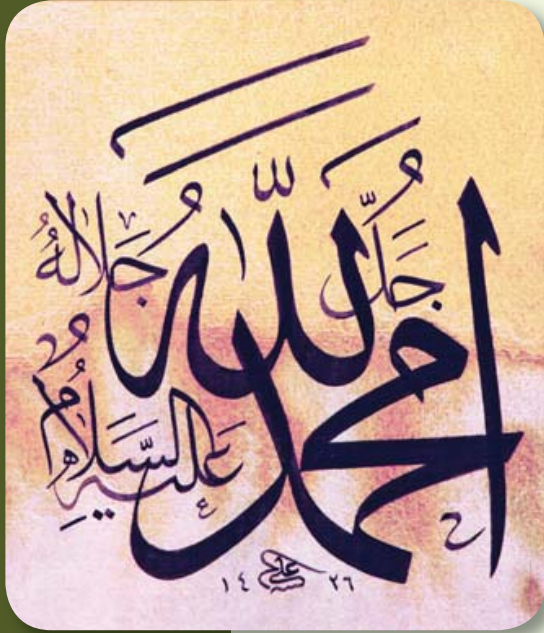 الله
جَلَّ جَلَالُهُ
محمد
عَلَيْهِ السَّلَامُ
١٤٢٦